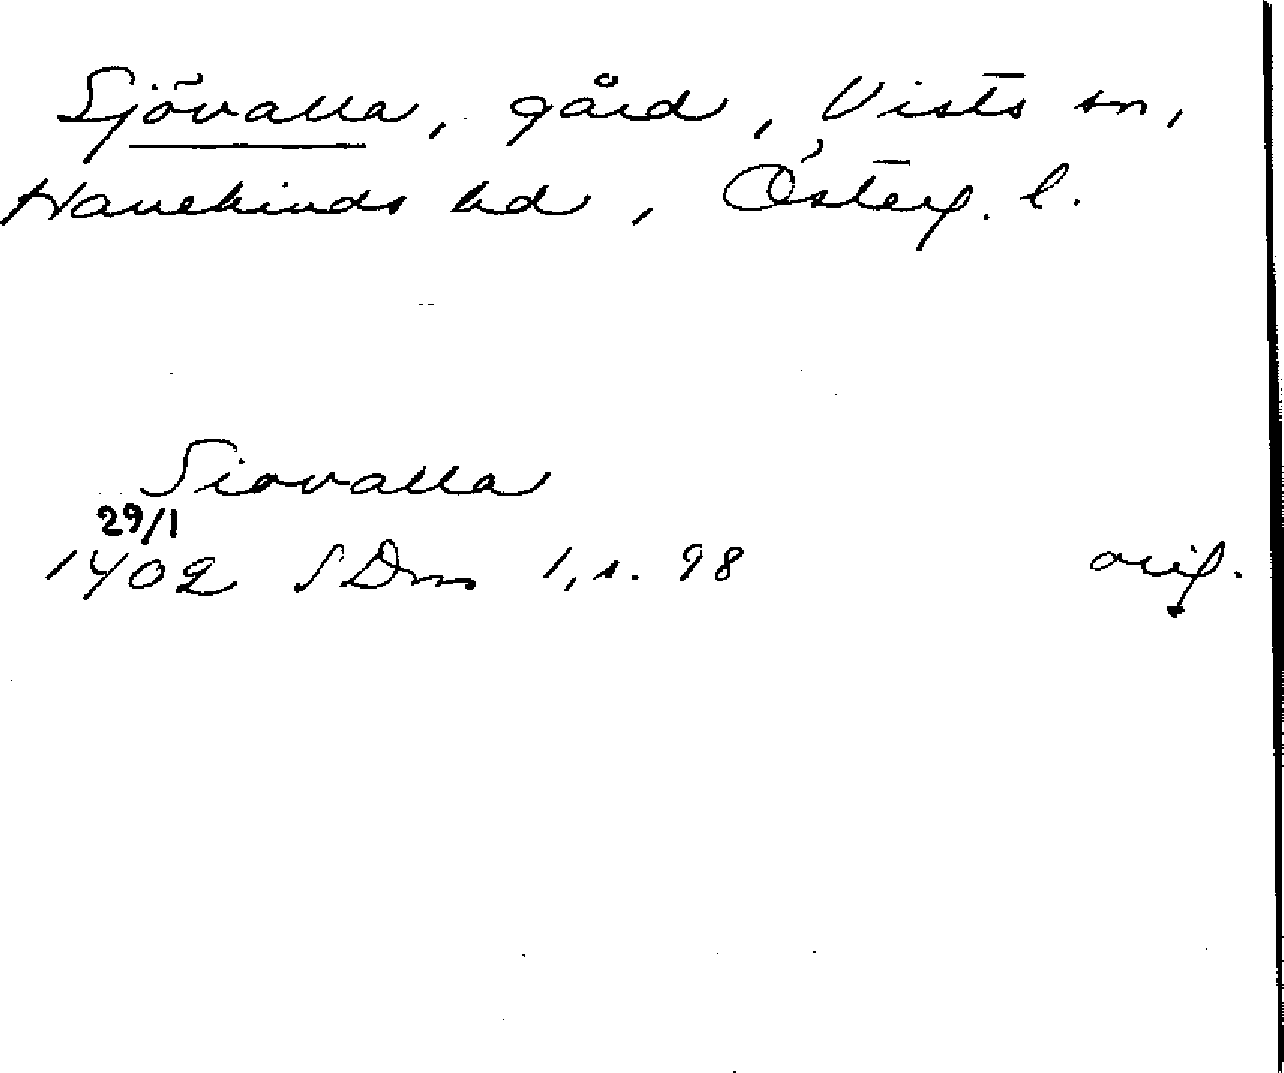 Sjövalla, gård, Vists sn,
Hanekinds hd, Österg. l.
Siovalla
29/1
1402 SDns 1, s. 98 orig.